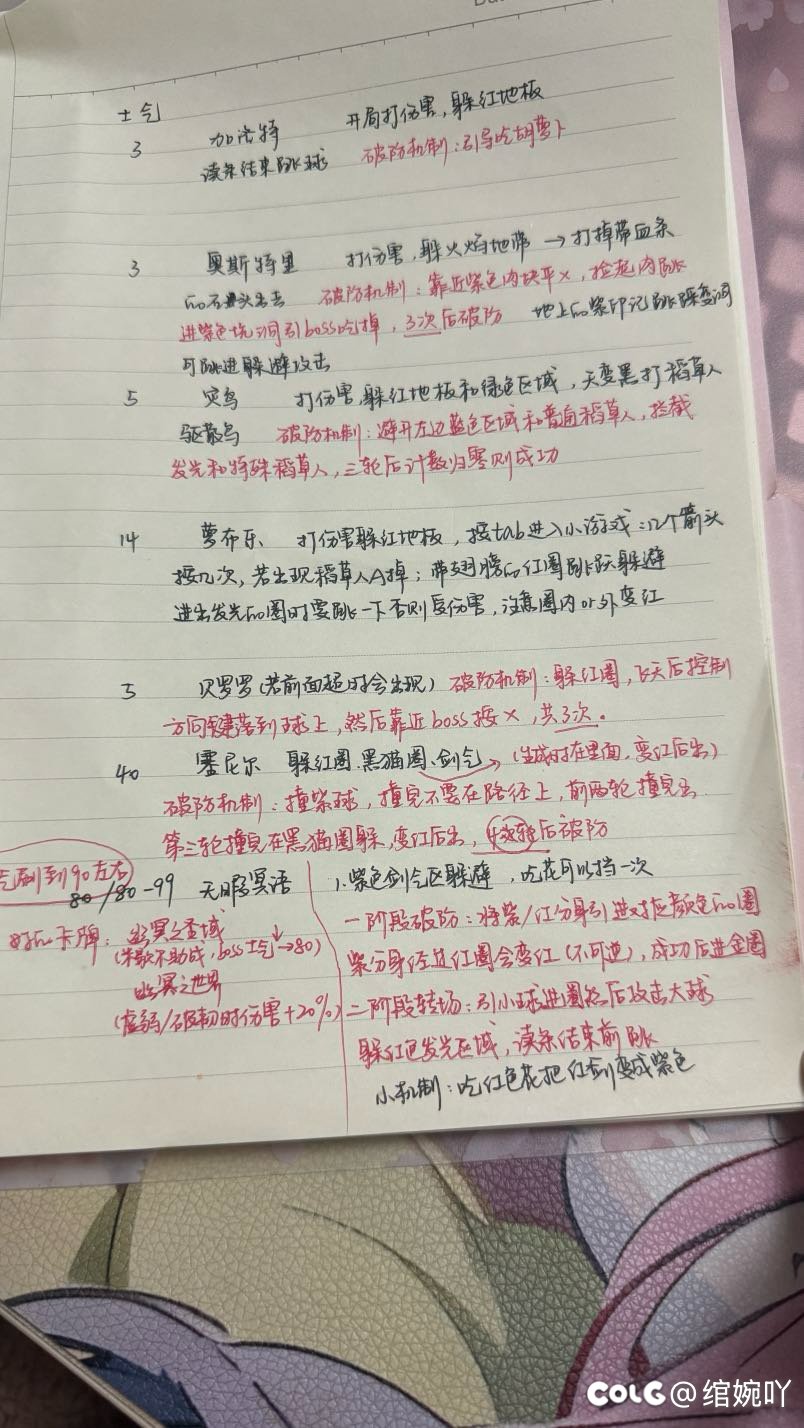 士气
3 加洛特 开局打伤害,躲红地板
读条结束跳球 破防机制:引导吃胡萝卜
3 奥斯特里 打伤害,躲火焰地带→打掉带血条
的石头去 破防机制:靠近紫色肉块平x,捡起肉跳
进紫色坑洞引boss吃掉,3次后破防 地上的紫印记跳踩变洞
可跳进躲避攻击
5 灾鸟 打伤害,躲红地板和绿色区域,天变黑打稻草人
驱散鸟 破防机制:避开左边蓝色区域和普通稻草人,拦截
发光和特殊稻草人,三轮后计数归零则成功
14 萝布乐、打伤害躲红地板,按tab进入小游戏:几个箭头
按几次,若出现稻草人A掉;带翅膀的红圈跳跃躲避
进出发光的圈时要跳一下否则受伤害,注意圈内or外变红
5 贝罗罗(若前面超时会出现) 破防机制:躲红圈,飞天后控制
方向键落到球上,然后靠近boss按x,共3次。
40 塞尼尔 躲红圈、黑猫圈、剑气→(生成时在里面,变红后出)
破防机制:撞紫球,撞完不要在路径上,前两轮撞完出
第三轮撞完在黑猫圈躲,变红后出,后破防
到90左右
80/80-99 无暇冥语 1.紫色剑气区躲避,吃花可以挡一次
的卡牌:幽冥之圣域 一阶段破防:将紫/红分身引进对应颜色的圈
(不助战,boss士气↓→80) 紫分身经过红圈会变红(不可逆),成功后进金圈
幽冥之世界
(虚弱/破韧时伤害+20%) 二阶段转场:引小球进圈然后攻击大球
躲红色发光区域,读条结束前跳
小机制:吃红色花把红剑变成紫色
COLG @绾婉吖